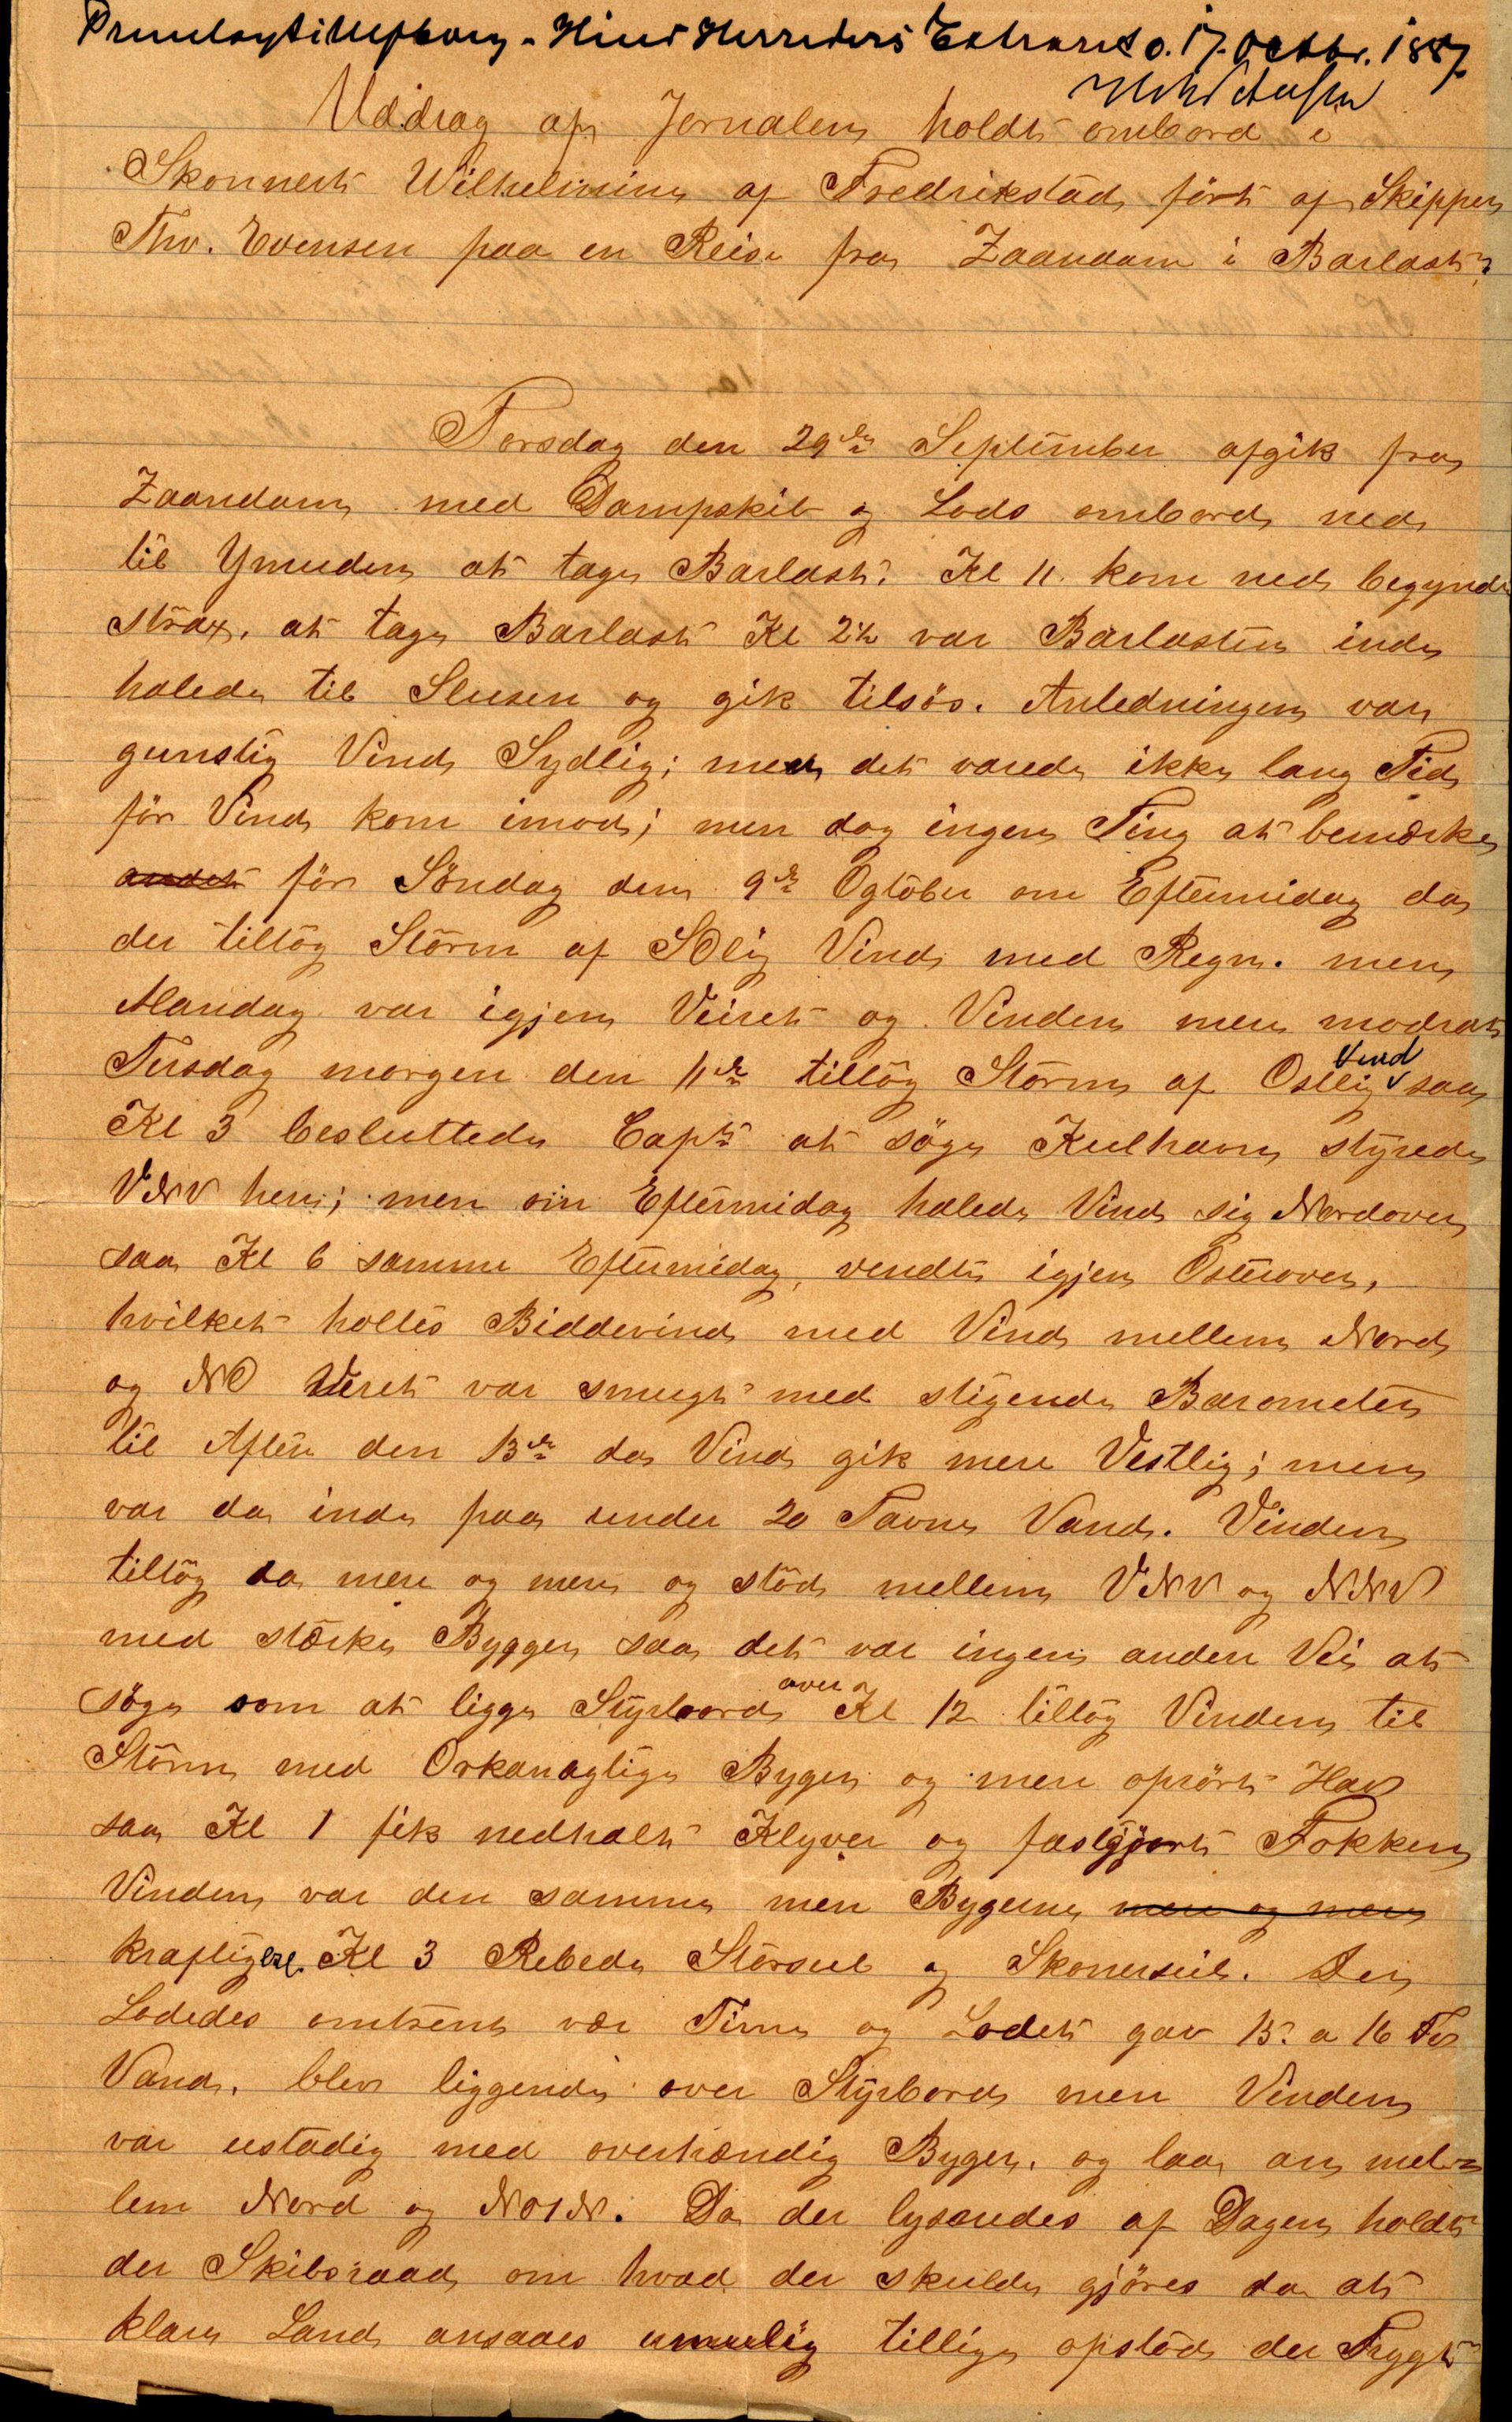 Hins Herreders Extraret d. 17. Octbr. 1887
Uddrag af Jornalen holdt ombord i
Skonnert Wilhelmine af Fredrikstad ført af Skipper
Thv. Evensen paa en Reise fra Zaandam i Barlast.
Torsdag den 29de September afgik fra
Zaandam med Dampskib og Lods ombord ned
til Ymuden at tage Barlast. Kl 11 kom ned begynde
strax. at tage Barlast Kl 2½ var Barlasten inde
halede til Slusen og gik tilsös. Anledningen var
gunstig Vind Sydlig; men det varede ikke lang Tid
för Vind kom imod; men dog ingen Ting at bemærke
andet för Söndag den 9de Ogtober om Eftermidag da
der tiltog Storm af SOlig Vind med Regn. men
Mandag var igjen Veiret og Vinden mere modrat
Tirsdag morgen den 11te tiltog Storm af Ostlig Vind saa
Kl 3 besluttede Capt at söge Kulhavn styrede
VNV hen; men om Eftermidag halede Vind sig Nordover
saa Kl 6 samme Eftermidag, vendte igjen Osterover,
hvilket holtes Biddevind med Vind mellem Nord
og NO Veret var smugt med stigende Barometer
til Aften den 13de da Vind gik mere Vestlig; men
var da inde paa under 20 Favne Vand. Vinden
tiltog da mere og mere og stöd mellem VNV og NNV
med stærke Bygger saa det var ingen anden Vei at
söge som at ligge Styrbord over Kl 12 tiltog Vinden til
Storm med Orkanagtige Byger og mere oprört Hav
saa Kl 1 fik nedhalt Klyver og fastgjort Fokken
Vinden var den samme men Bygerne mere og mere
kraftigere. Kl 3 Rebede Storseil og Skonerseil. Der
Lodedes omtrent vær Time og Lodet gav 15 a 16 Fv
Vand. blev liggende over Styrbord men Vinden
var ustadig med overhændig Byger. og laa an mel-
lem Nord og NO1N. Da der lysnedes af Dagen holdt
der Skibsraad om hvad der skulde gjöres da at
klare Land ansaaes umulig tillige opstod der Frygt